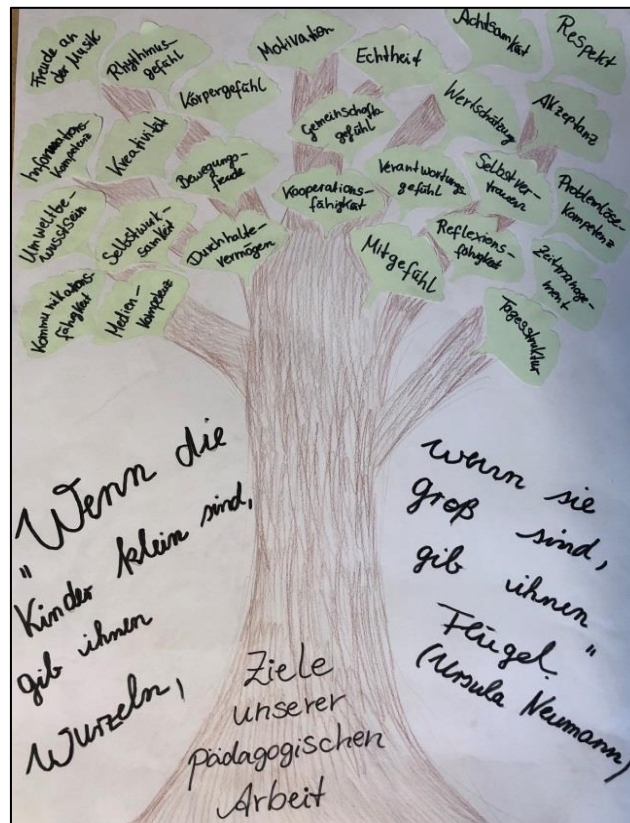 Freude an
der Musik
Rhythmus-
gefühl
Motivation
Echtheit
Achtsamkeit
Respekt
Körpergefühl
Gemeinschafts
gefühl
Wertschätzung
Akzeptanz
Informations-
kompetenz
Kreativität
Bewegungs-
freude
Kooperations-
fähigkeit
Verantwortungs
gefühl
Selbstver-
trauen
Problemlöse-
kompetenz
Umweltbe-
wusstsein
Selbstwirk-
samkeit
Durchhalte-
vermögen
Mitgefühl
Reflexions-
fähigkeit
Zeitmanage-
ment
Kommunikations-
fähigkeit
Medien-
kompetenz
Tagesstruktur
"Wenn die
Kinder klein sind,
gib ihnen
Wurzeln,
wenn sie
groß sind,
gib ihnen
Flügel."
(Ursula Neumann)
Ziele
unserer
pädagogischen
Arbeit